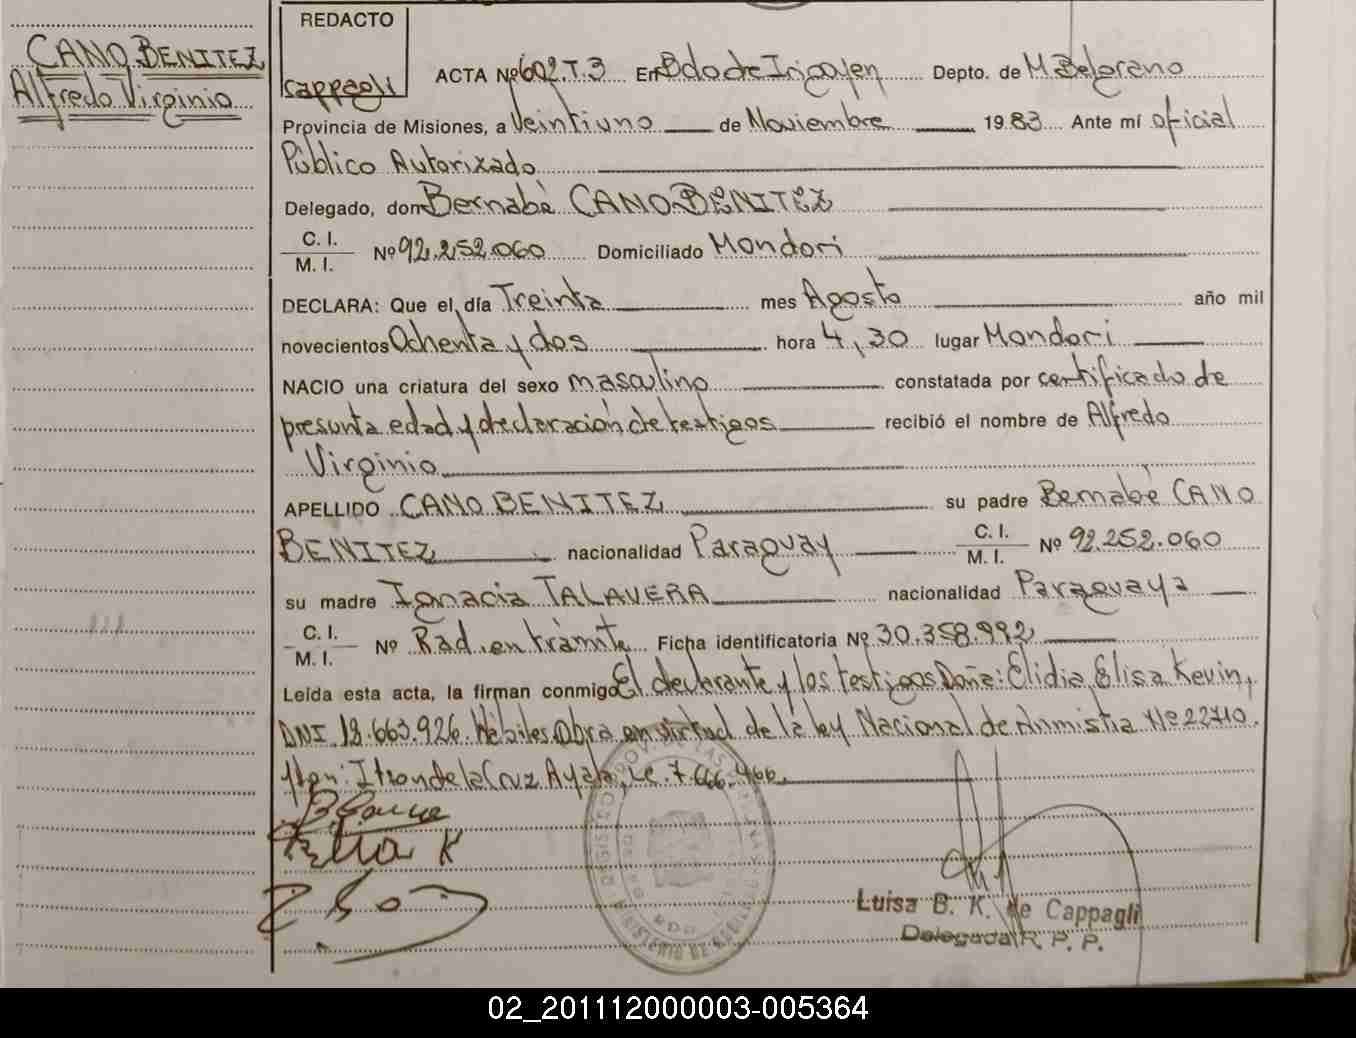 CANO BENITEZ
Alfredo Virginio
REDACTO
Cappagli
ACTA Nº 602.T.3 En Bdo de Irigoyen Depto. de M. Belgrano
Provincia de Misiones, a Veintiuno de Noviembre 1983 Ante mí oficial
Público Autorizado
Delegado, don Bernabé CANO BENITEZ
C. I.
M. I. Nº 92.252.060 Domiciliado Mondori
DECLARA: Que el día Treinta mes Agosto año mil
novecientos Ochenta y dos hora 4,30 lugar Mondori
NACIO una criatura del sexo masculino constatada por certificado de
presunta edad y declaración de testigos recibió el nombre de Alfredo
Virginio
APELLIDO CANO BENITEZ su padre Bernabé CANO
BENITEZ nacionalidad Paraguay C. I.
M. I. Nº 92.252.060
su madre Ignacia TALAVERA nacionalidad Paraguaya
C. I.
M. I. Nº Rad. en tràmite Ficha identificatoria Nº 30.358.992
Leída esta acta, la firman conmigo El declarante y los testigos Doña: Elidia Elisa Kevin,
DNI 18.663.926. Hàbiles. Obra en virtud de la ley Nacional de Amnistia Nº 22710.
de la Cruz Ayala, Le. 7.666.466.
Luisa B. K. de Cappagli
Delegada R. P. P.
02_201112000003-005364